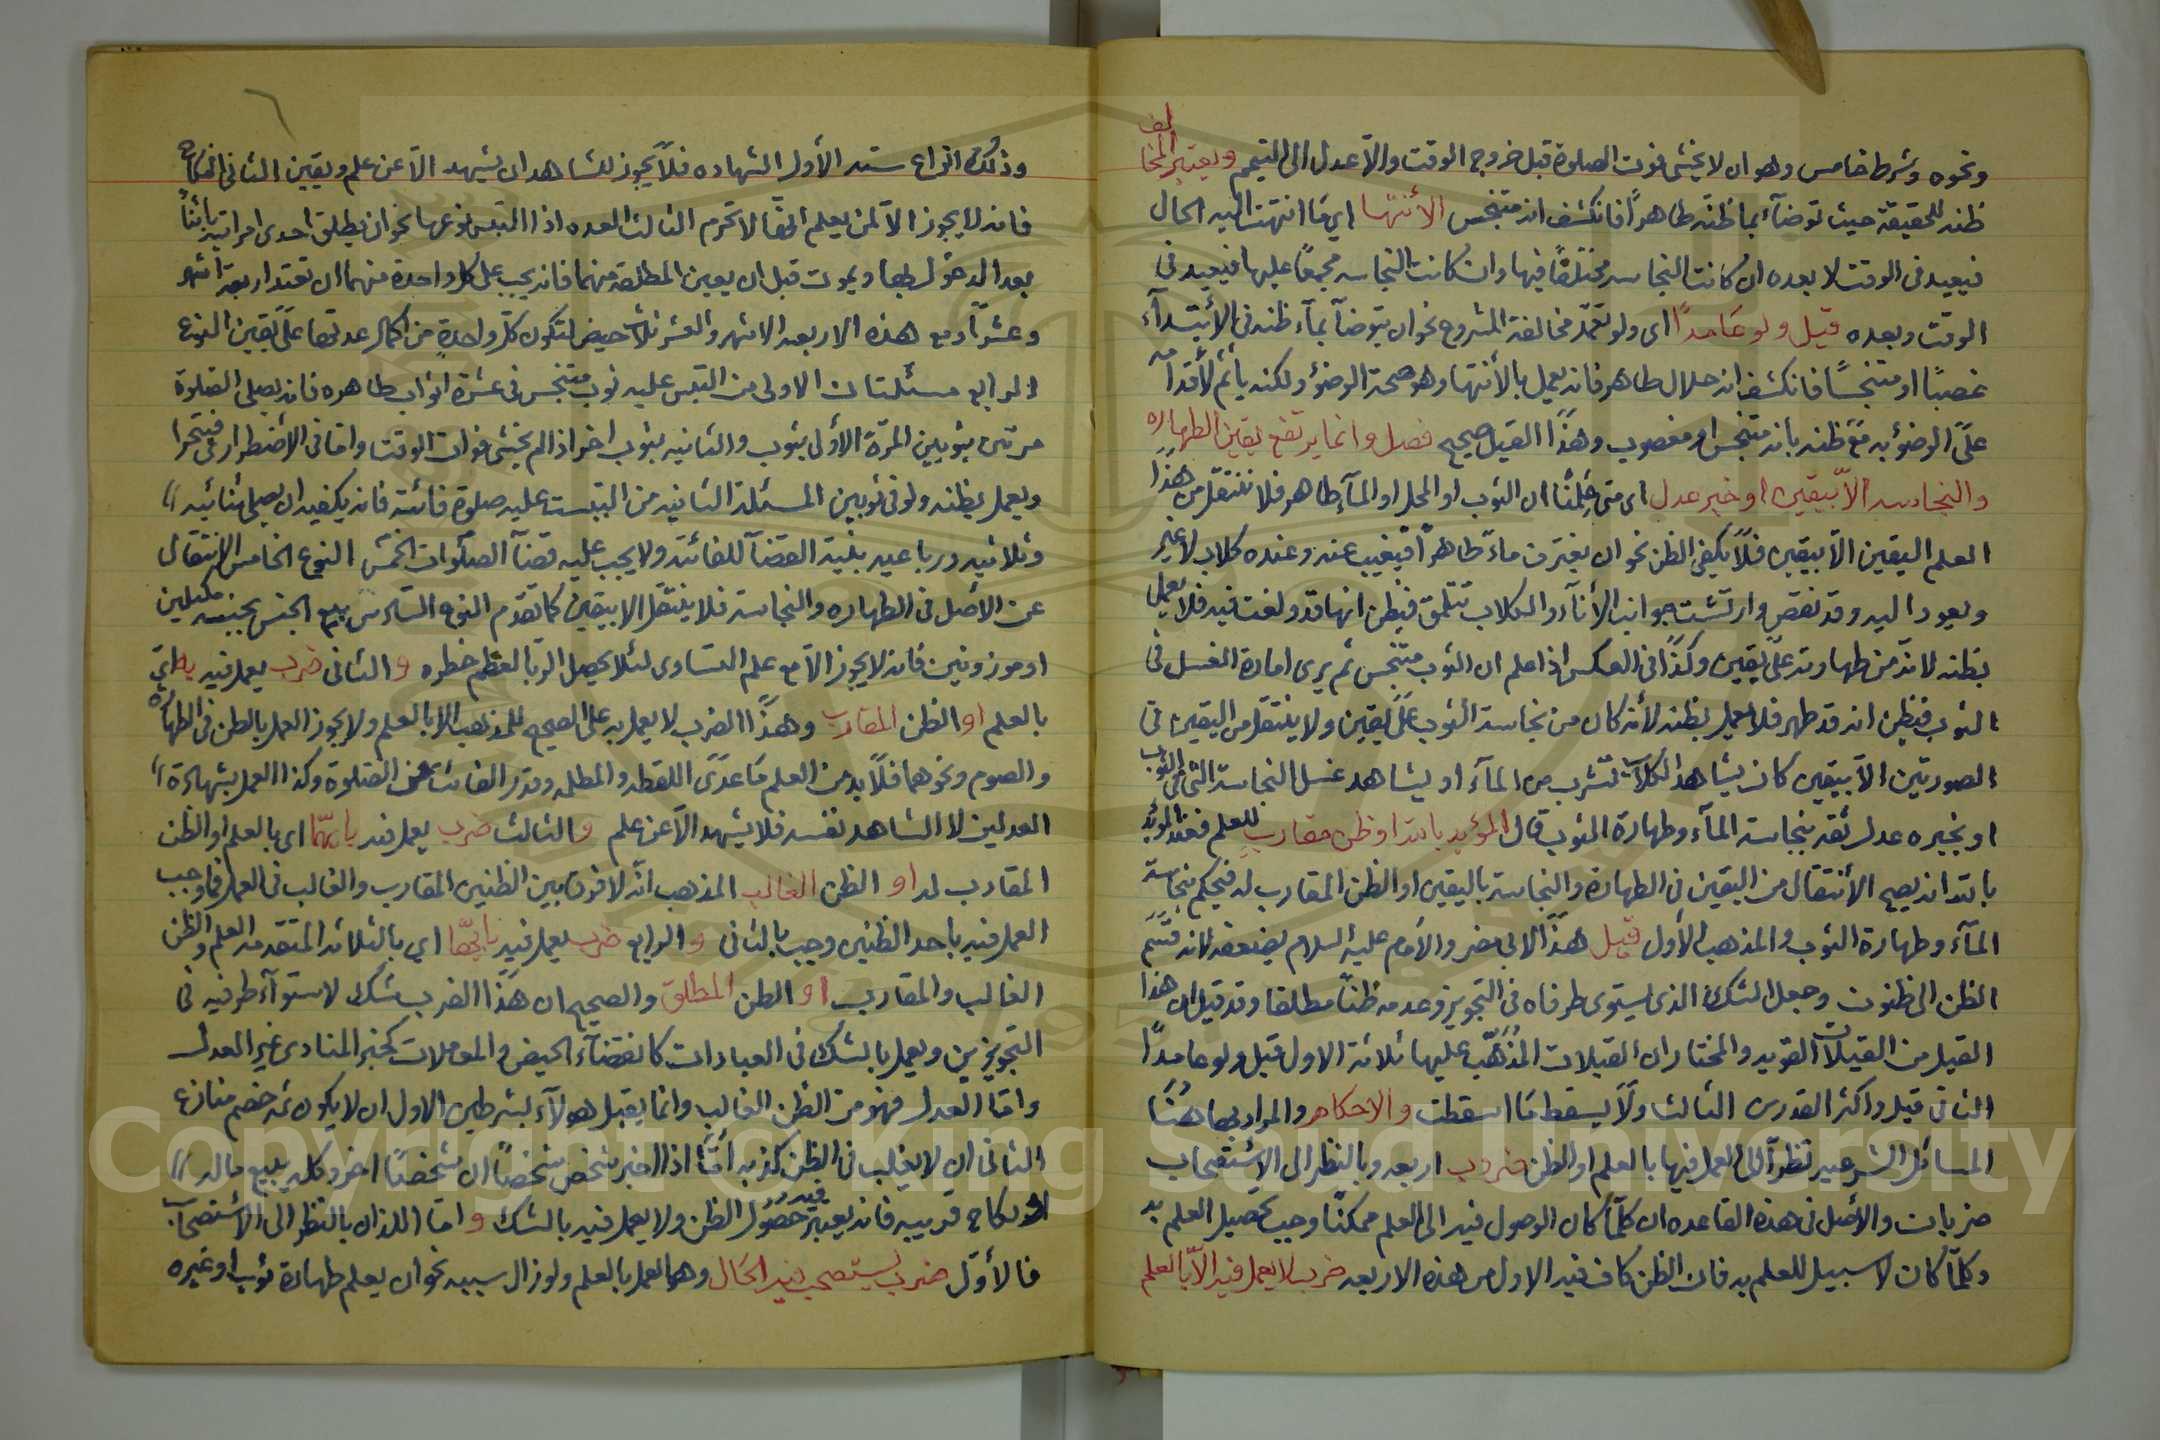 ونحوه وشرط خامس وهو ان لا يخشى فوت الصلوة قبل خروج الوقت والا عدل الى التيمم ويعتبر المخالف
ظنه للحقيقة حيث توضأ بما ظنه طاهرًا فانكشف انه متنجس الأنتها اي ما انتهت اليه الحال
فيعيد في الوقت لا بعده ان كانت النجاسه مختلفًا فيها وان كانت النجاسه مجمعًا عليها فيعيد في
الوقت وبعده قيل ولو عامدًا اى ولو تعمد مخالفة المشروع نحو ان يتوضأ بمآء ظنه في الأبتدآء
غصبًا او متنجسًا فانكشف انه حلال طاهر فانه يعمل بالأنتها وهو صحة الوضؤ ولكنه يأثم لأقدامه
على الوضؤ به مع ظنه بانه متنجس او مغصوب وهذا القيل صحيح فصل وانما يرتفع يقين الطهاره
والنجاسه الا بيقين او خبر عدل اى متى علمنا ان الثوب او المحل او المآء طاهر فلا ننتقل من هذا
العلم اليقين الا بيقين فلا يكفى الظن نحو ان يغترف ماءً طاهرًا فيغيب عنه وعنده كلاب لا غير
ويعود اليه وقد نقص وارتشت جوانب الأنآء والكلاب تتلمق فيظن انها قد ولغت فيه فلا يعمل
بظنه لانه من طهارته على يقين وكذا في العكس اذا علم ان الثوب متنجس ثم يرى امارة الغسل في
الثوب فيظن انه قد طهر فلا يعمل بظنه لأنه كان من نجاسة الثوب على يقين ولا ينتقل من اليقين في
الصورتين الا بيقين كان يشاهد الكلاب تشرب من المآء او يشاهد غسل النجاسة التى في الثوب
او يخبره عدل ثقه بنجاسة المآء وطهارة الثوب قال المؤيد بالله او ظن مقارب للعلم فعند المؤيد
بالله انه يصح الأنتقال من اليقين في الطهارة والنجاسة باليقين او الظن المقارب له فيحكم بنجاسة
المآء وطهارة الثوب والمذهب الأول قيل هذا لابي مضر والأمام عليه السلام يضعفه لانه قسّم
الظن الى ظنون وجعل الشك الذى يستوى طرفاه في التجويز وعدمه ظنًا مطلقا وقد قيل ان هذا
القيل من القيلات القويه والمختار ان القيلات المذهّب عليها ثلاثة الاول قيل ولو عامدًا
الثاني قيل واكثر القدرى الثالث ولا يسقط ما اسقطت والاحكام والمراد بها هنا
المسائل الشرعيه نظرًا الى العمل فيها بالعلم او الظن ضروب اربعه وبالنظر الى الاستصحاب
ضربات والأصل في هذه القاعده ان كلما كان الوصول فيه الى العلم ممكنًا وجب تحصيل العلم به
وكلما كان لا سبيل للعلم به فان الظن كاف فيه الاول من هذه الاربعه ضرب لا يعمل فيه الا بالعلم
وذلك انواع سته الأول الشهاده فلا يجوز للشاهد ان يشهد الا عن علم ويقين الثاني النكاح
فانه لا يجوز الا لمن يعلم انها لا تحرم الثالث العده اذا التبس نوعها نحو ان يطلق احدى امراتيه بائنًا
بعد الدخول بها ويموت قبل ان يعين المطلقه منهما فانه يجب على كل واحدة منهما ان تعتد اربعة اشهر
وعشرًا ومع هذه الاربعه الاشهر والعشر ثلاث حيض لتكون كل واحدة من اكمال عدتها على يقين النوع
الرابع مسئلتان الاولى من التبس عليه ثوب متنجس في عشرة اثواب طاهره فانه يصلى الصلوة
مرتين بثوبين المرّة الأولى بثوب والثانيه بثوب اخر اذا لم يخشى فوات الوقت واما في الأضطرار فيتحرا
ويعمل بظنه ولو في ثوبين المسئلة الثانيه من التبست عليه صلوة فائته فانه يكفيه ان يصلى ثنائيه //
وثلاثيه ورباعيه بنية القضآ للفائته ولا يجب عليه قضآ الصلوات الخمس النوع الخامس الانتقال
عن الأصل في الطهاره والنجاسة فلا ينتقل الا بيقين كما تقدم النوع السادس بيع الجنس بجنسه مكيلين
او موزونين فانه لا يجوز الا مع علم التساوى لئلا يحصل الربا لعظم خطره و الثاني ضرب يعمل فيه به اي
بالعلم او الظن المقارب وهذا الضرب لا يعمل به على الصحيح للمذهب الا بالعلم ولا يجوز العمل بالظن في الطهاره
والصوم ونحوهما فلا بد من العلم ما عدى اللقطه والمظلمه وقدر الفائت من الصلوة وكذا العمل بشهادة //
العدلين لا الشاهد نفسه فلا يشهد الا عن علم و الثالث ضرب يعمل فيه بايهما اى بالعلم او الظن
المقارب له او الظن الغالب المذهب انه لا فرق بين الظنين المقارب والغالب في العمل فما وجب
العمل فيه باحد الظنين وجب بالثاني و الرابع ضرب يعمل فيه بايها اي بالثلاثه المتقدمه العلم والظن
الغالب والمقارب او الظن المطلق والصحيح ان هذا الضرب شك لاستوآء طرفيه في
التجويزين ويعمل بالشك في العبادات كانقضآء الحيض والمعاملات كخبر المنادى غير العدل
واما العدل فهو من الظن الغالب وانما يقبل هولآء بشرطين الاول ان لا يكون ثمه خصم منازع
الثاني ان لا يغلب في الظن كذبه أما اذا اخبر شخص شخصًا ان شخصًا اخر وكله ببيع ماله //
او نكاح قريبه فانه يعتبر فيه حصول الظن ولا يعمل فيه بالشك و اما اللذان بالنظر الى الأستصحاب
فالأول ضرب يستصحب فيه الحال وهو العمل بالعلم ولو زال سببه نحو ان يعلم طهارة ثوب او غيره
Copyright © King Saud University